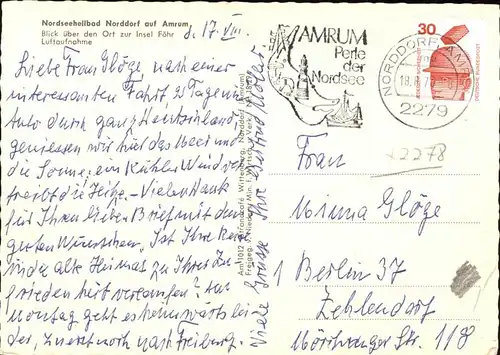 Nordseeheilbad Norddorf auf Amrum
Blick über den Ort zur Insel Föhr
Luftaufnahme
d. 17. VIII.
Liebe Frau Glöge, nach einer
interessanten Fahrt, 2 Tage im
Auto durch ganz Deutschland,
geniessen wir hier das Meer und
die Sonne; ein kühler Wind ver-
treibt die Hitze. - Vielen Dank
für Ihren lieben Brief mit den
guten Wünschen. Ist Ihre Reise
in die alte Heimat zu Ihrer Zu-
friedenheit verlaufen? Am
Montag geht es heimwärts lei-
der, zunächst nach Freiburg.
Viele Grüsse Ihre
Am 1012
AMRUM
Perle
der
Nordsee
NORDDORF, AMRUM
2279
30
DEUTSCHE BUNDESPOST
2278
Frau
Glöge
1 Berlin 37
Zehlendorf
Str. 118